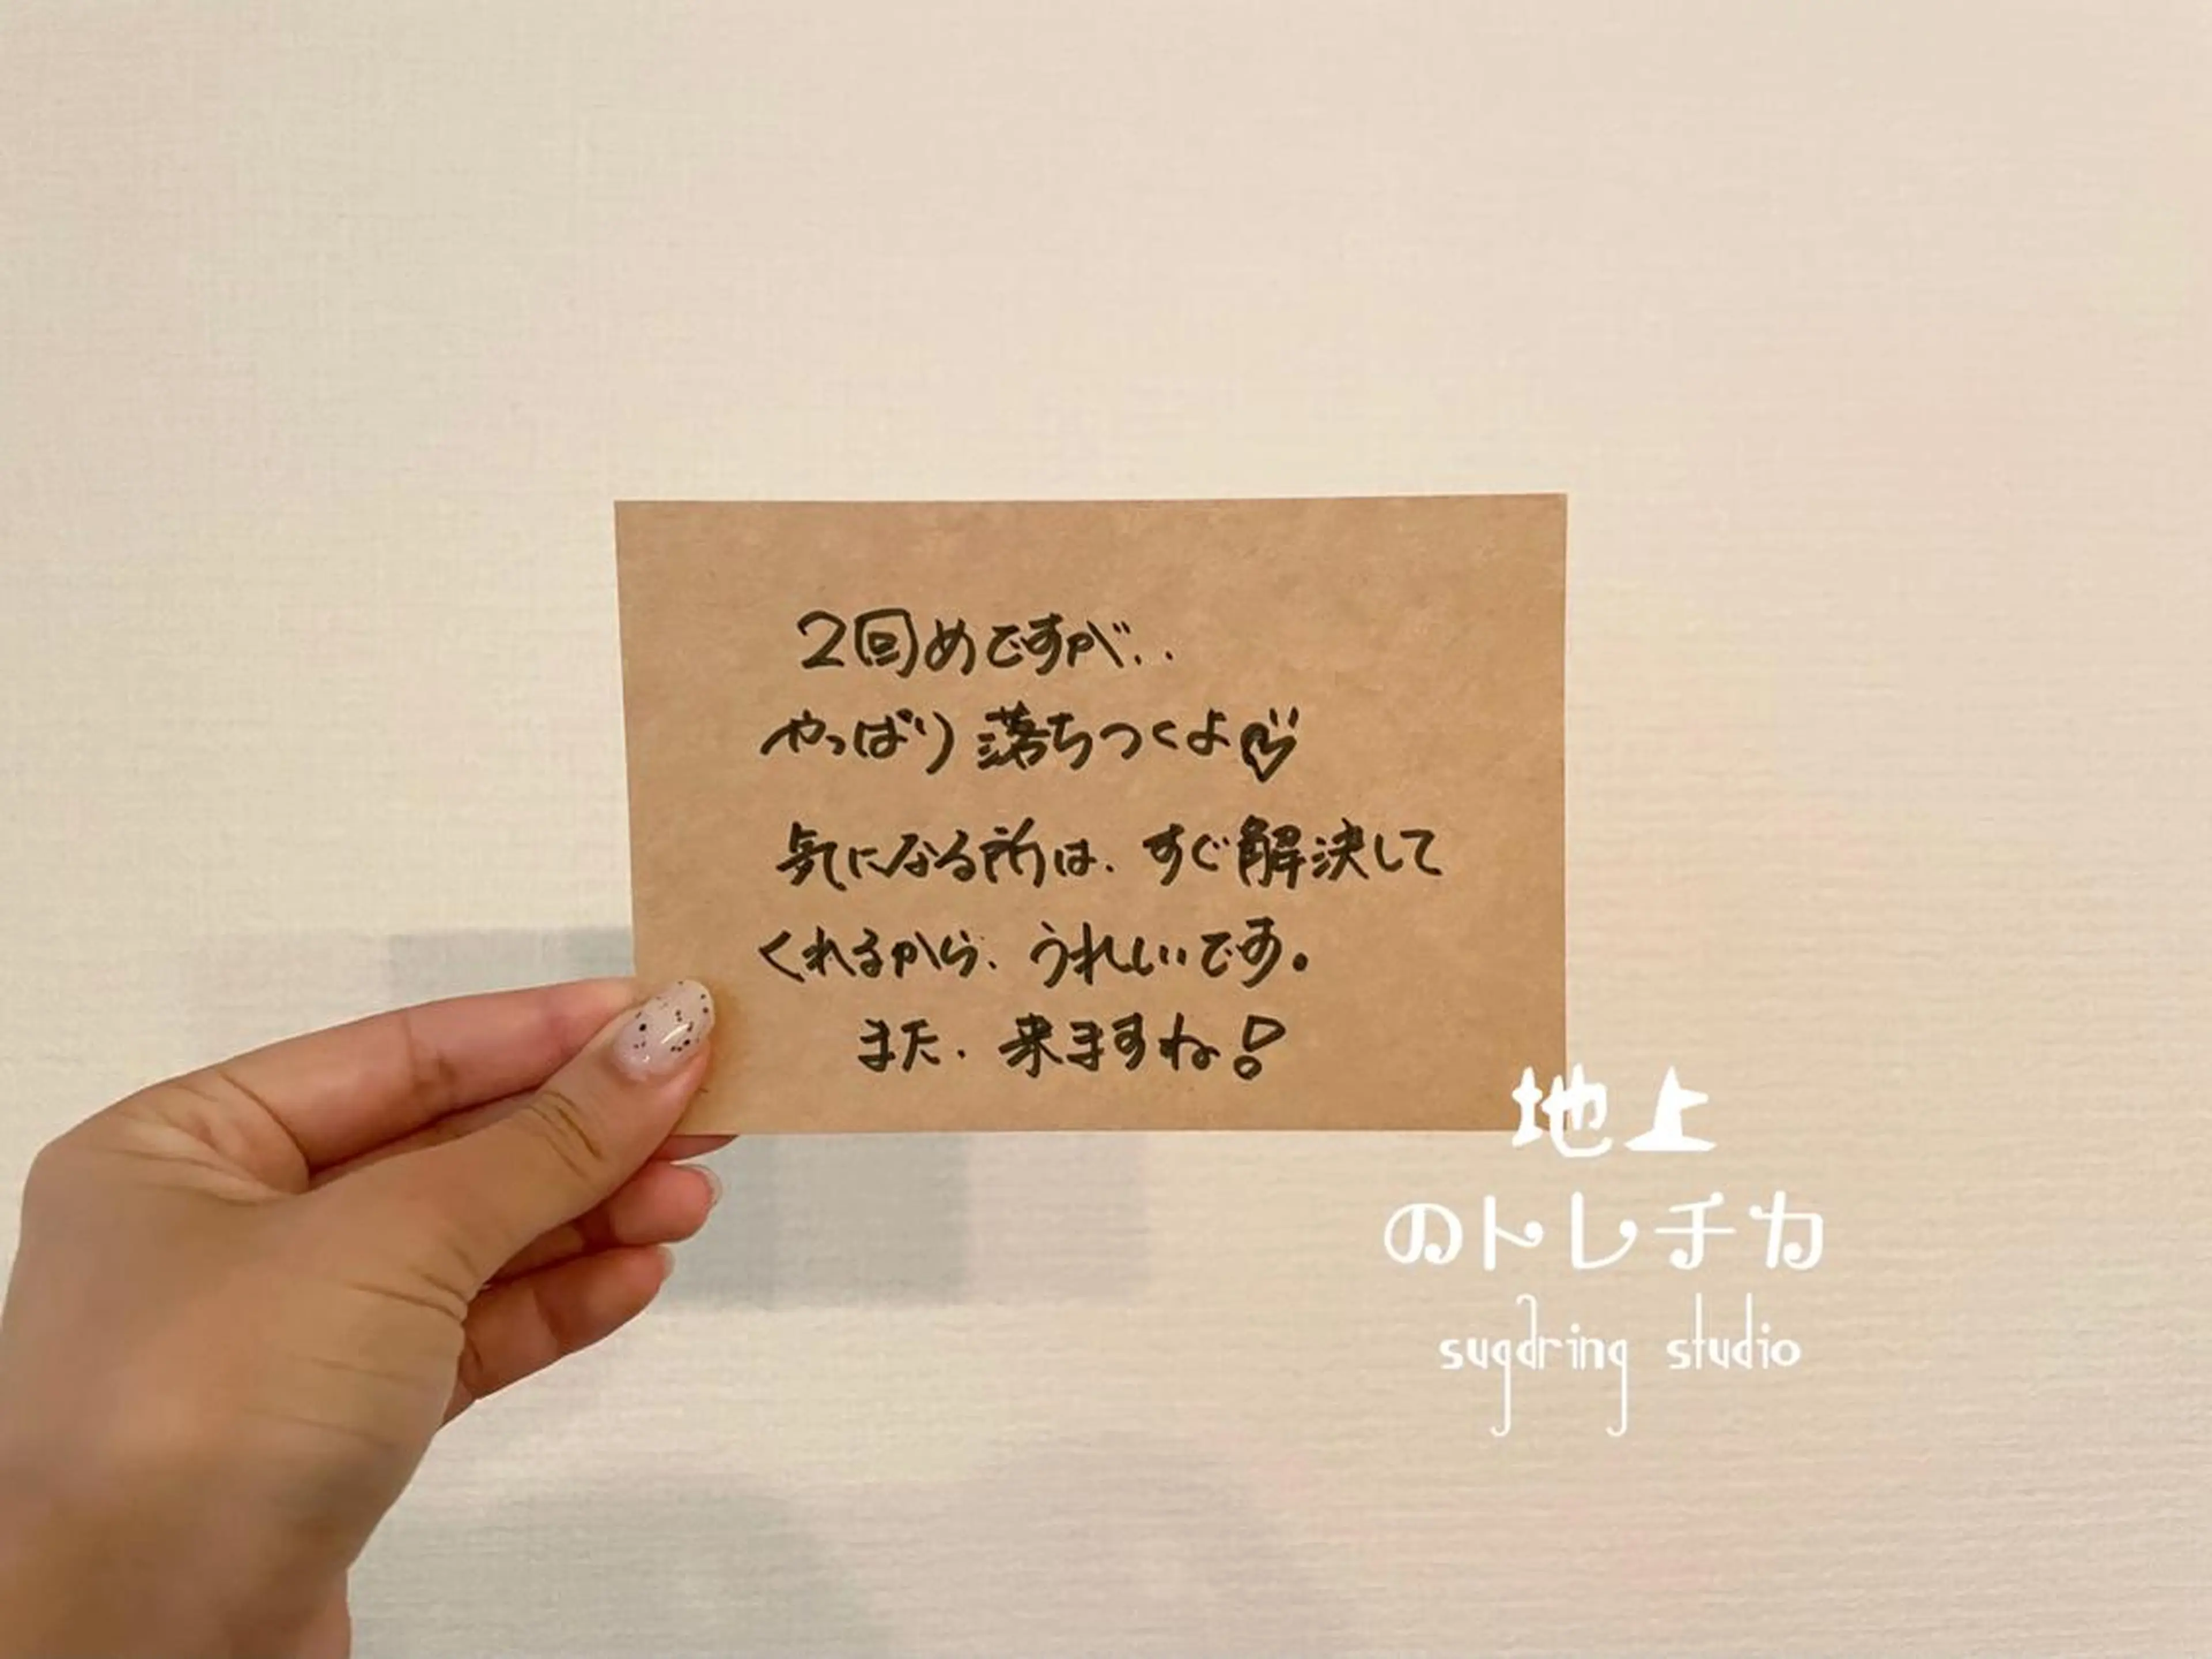 2回めですが..
やっぱり落ちつくよ♡
気になる所は、すぐ解決して
くれるから、うれしいです。
また、来ますね!
地上
のトレチカ
sugaring studio